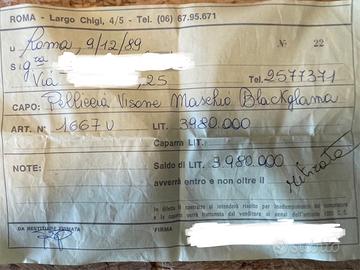 ROMA - Largo Chigi, 4/5 - Tel. (06) 67.95.671
Roma, 9/12/89 N° 22
SIG.ra
Via , 25 Tel. 2577371
CAPO: Pelliccia Visone Maschio Blackglama
ART. N° 1667U LIT. 3980.000
Caparra LIT.
NOTE: Saldo di LIT. 3980.000
avverrà entro e non oltre il ritirata
DA RESTITUIRE FIRMATA FIRMA